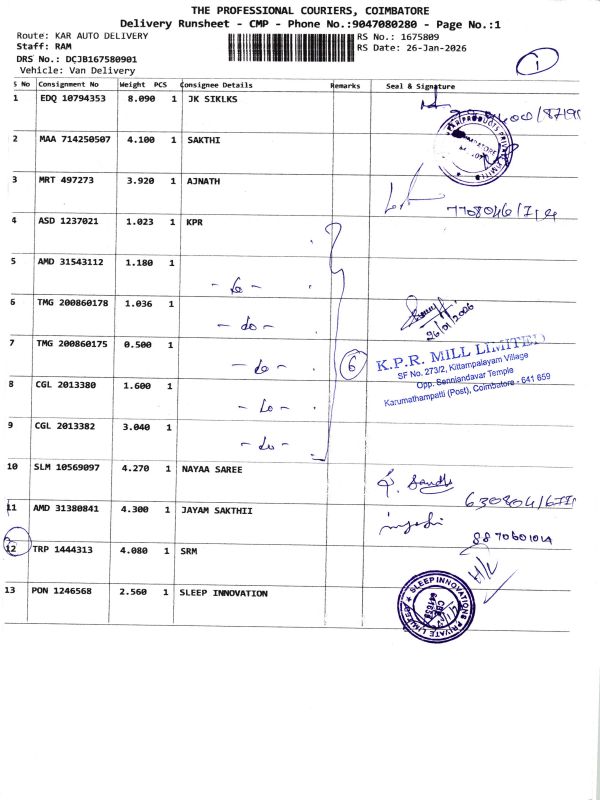 THE PROFESSIONAL COURIERS, COIMBATORE
Delivery Runsheet - CMP - Phone No.:9047080280 - Page No.:1
Route: KAR AUTO DELIVERY
RS No.: 1675809
Staff: RAM
RS Date: 26-Jan-2026
DRS No.: DCJB167580901
Vehicle: Van Delivery
1
S No Consignment No Weight PCS Consignee Details Remarks Seal & Signature
1 EDQ 10794353 8.090 1 JK SIKLKS
2 MAA 714250507 4.100 1 SAKTHI
3 MRT 497273 3.920 1 AJNATH
4 ASD 1237021 1.023 1 KPR
5 AMD 31543112 1.180 1 - do -
6 TMG 200860178 1.036 1 - do -
26/01/2026
7 TMG 200860175 0.500 1 - do - 6
K.P.R. MILL LIMITED
SF No. 273/2, Kittampalayam Village
Opp. Senniandavar Temple
Karumathampatti (Post), Coimbatore - 641 659
8 CGL 2013380 1.600 1 - do -
9 CGL 2013382 3.040 1 - do -
10 SLM 10569097 4.270 1 NAYAA SAREE
11 AMD 31380841 4.300 1 JAYAM SAKTHII
12 TRP 1444313 4.080 1 SRM
H/L
13 PON 1246568 2.560 1 SLEEP INNOVATION
SLEEP INNOVATIONS PRIVATE LIMITED